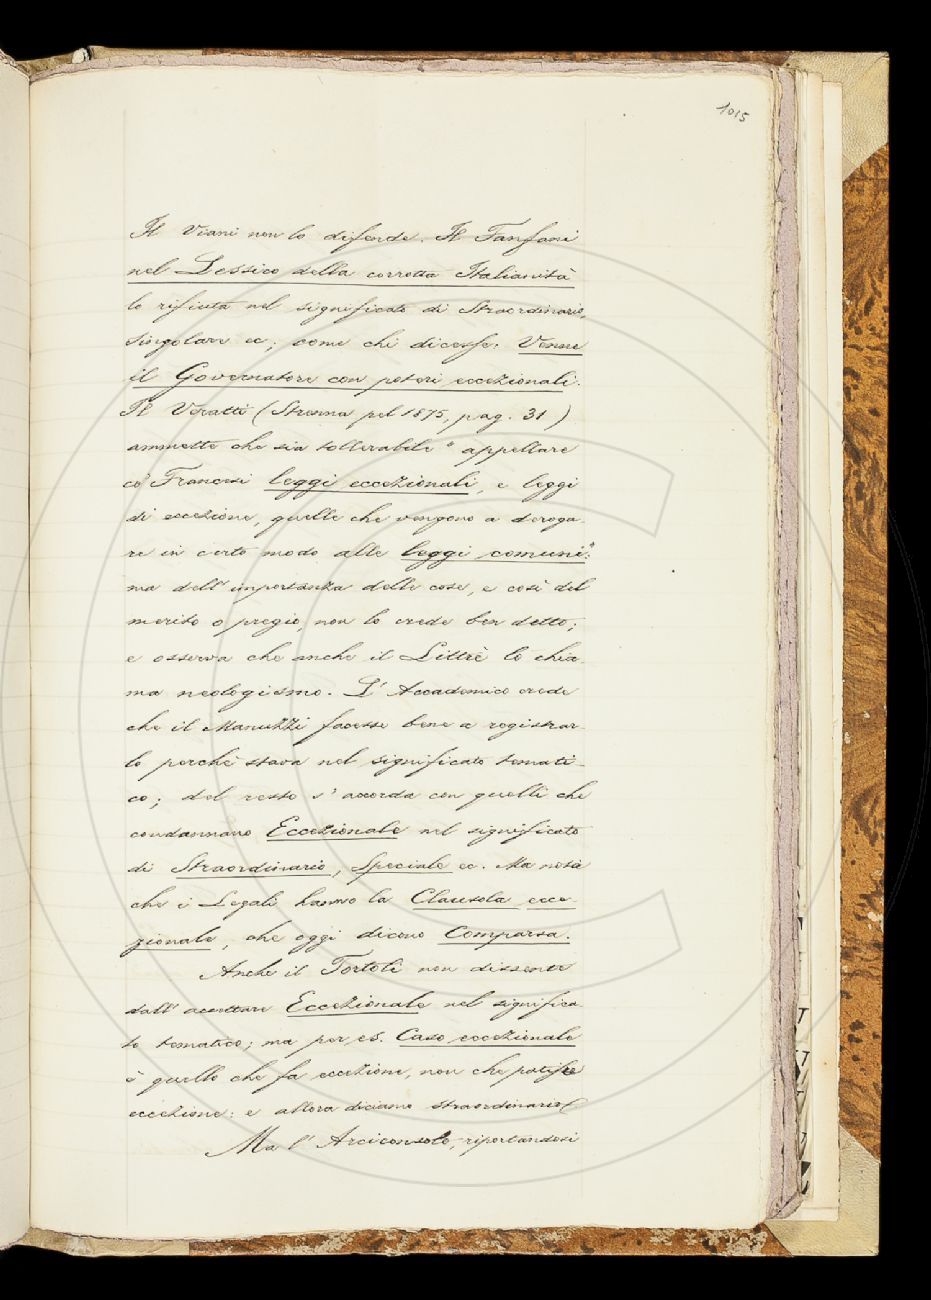 1015
Il Viani non lo difende. Il Fanfani
nel Lessico della corrotta Italianità
lo rifiuta nel significato di Straordinario,
Singolare ec; come chi dicesse: Venne
il Governatore con poteri eccezionali.
Il Veratti (Strenna pel 1875, pag. 31)
ammette che sia tollerabile "appellare
co' Francesi leggi eccezionali, e leggi
di eccezione, quelle che vengono a deroga
re in certo modo alle leggi comuni":
ma dell'importanza delle cose, e così del
merito o pregio, non lo crede ben detto;
e osserva che anche il Littrè lo chia
ma neologismo. L'Accademico crede
che il Manuzzi facesse bene a registrar-
lo perchè stava nel significato temati-
co; del resto s'accorda con quelli che
condannano Eccezionale nel significato
di Straordinario, Speciale ec. Ma nota
che i Legali hanno la Clausola ecce-
zionale, che oggi dicono Comparsa.
Anche il Tortoli non dissente
dall'accettare Eccezionale nel significa
to tematico; ma per es. Caso eccezionale
è quello che fa eccezione, non che patisce
eccezione: e allora diciamo straordinario.
Ma l'Arciconsolo, riportandosi